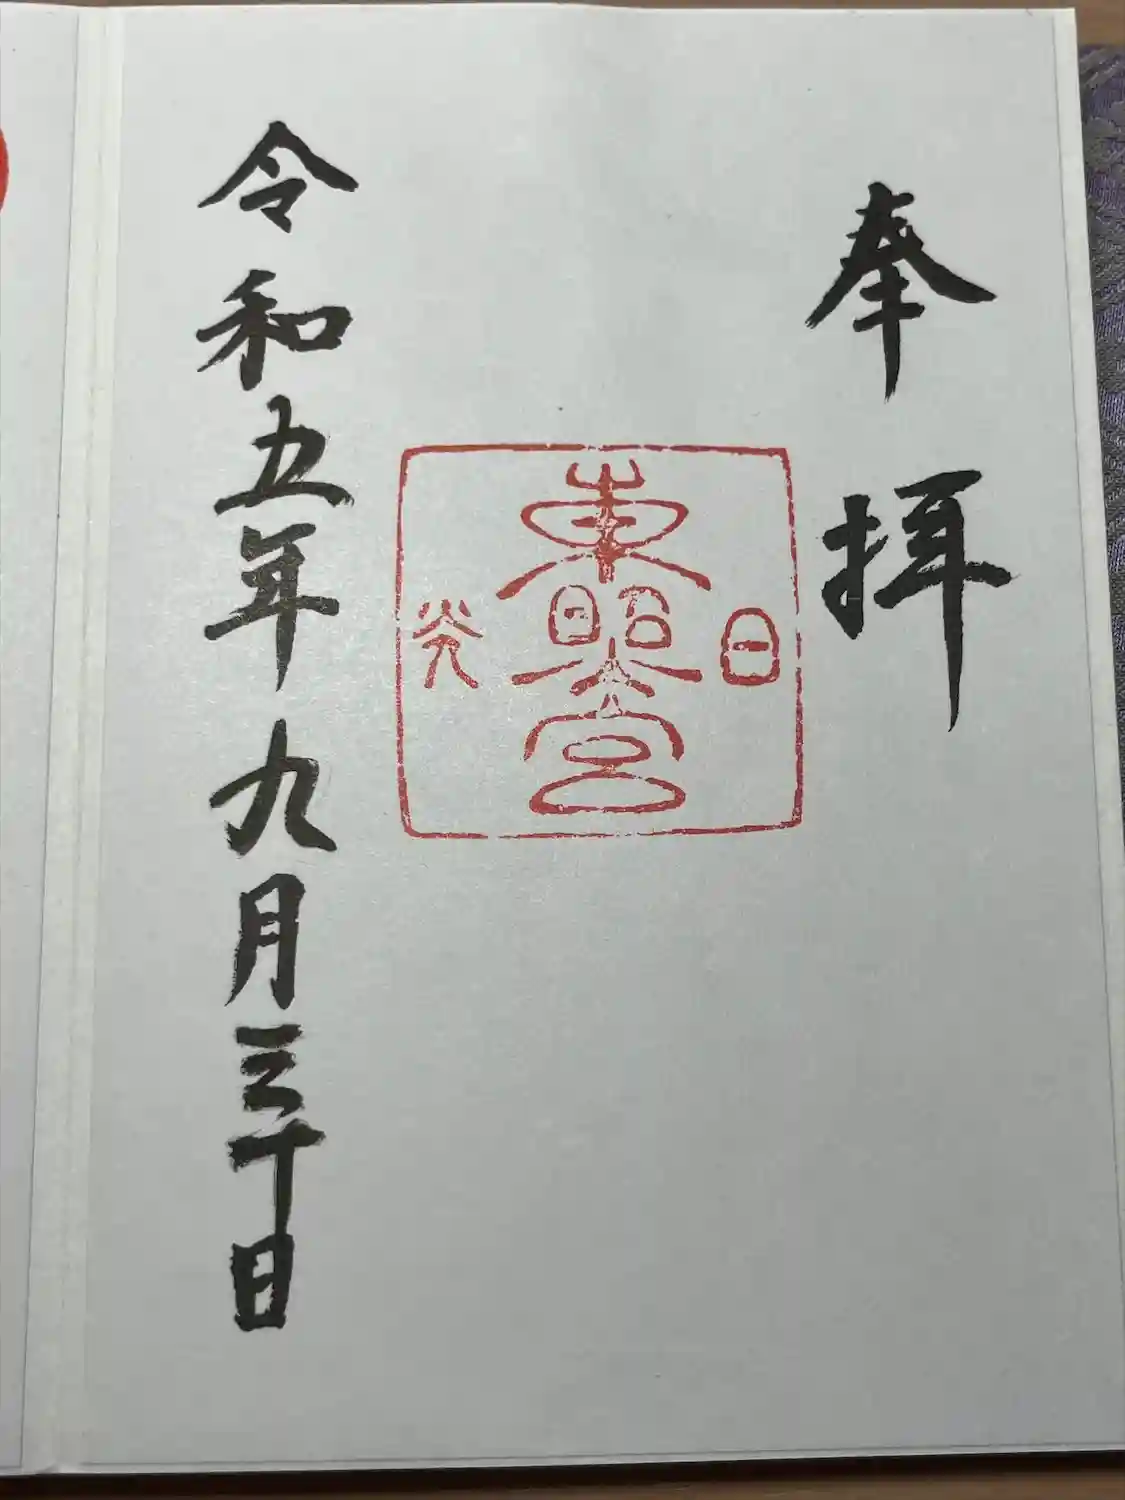 奉拝
日
東照宮
光
令和五年九月三十日